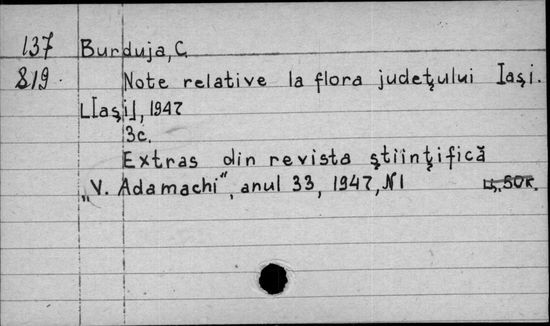 137 Burduja, C.
819. Note relative la flora judeţului Iaşi.
[Iaşi], 1947
3c.
Extras din revista ştiinţifică
„V. Adamachi", anul 33, 1947, N1
50к.